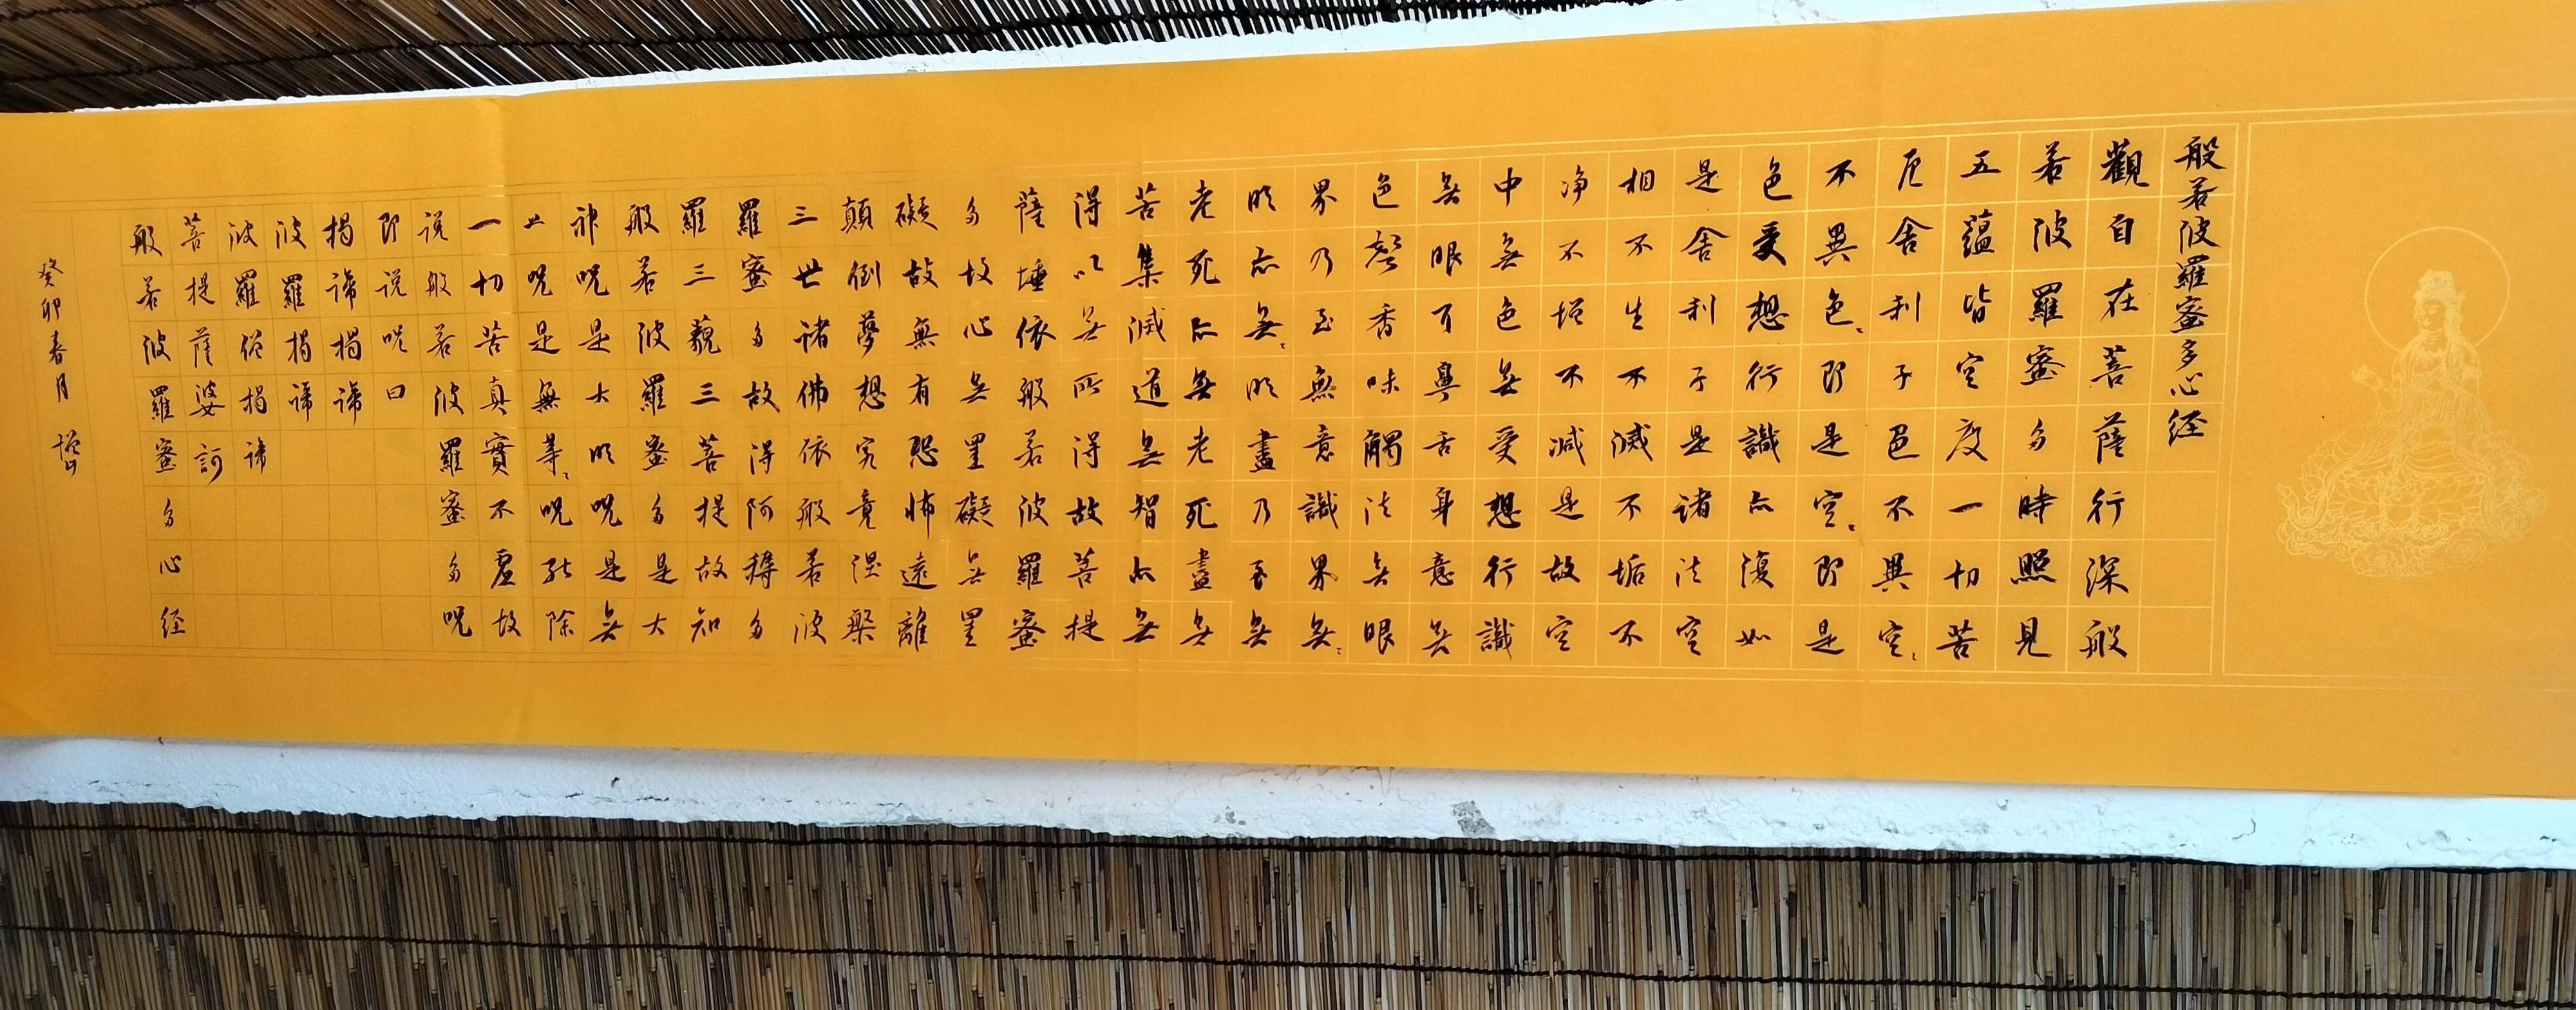 般若波羅蜜多心经
觀自在菩薩行深般
若波羅蜜多時照見
五蘊皆空度一切苦
厄舍利子色不異空〻
不異色〻即是空〻即是
色受想行識亦復如
是舍利子是諸法空
相不生不滅不垢不
净不增不减是故空
中無色無受想行識
無眼耳鼻舌身意無
色聲香味觸法無眼
界乃至無意識界無〻
明亦無〻明盡乃至無
老死亦無老死盡無
苦集滅道無智亦無
得以無所得故菩提
薩埵依般若波羅蜜
多故心無罣礙無罣
礙故無有恐怖遠離
顛倒夢想究竟涅槃
三世諸佛依般若波
羅蜜多故得阿耨多
羅三藐三菩提故知
般若波羅蜜多是大
神呪是大明呪是無
上呪是無等〻呪能除
一切苦真實不虛故
说般若波羅蜜多呪
即说呪曰
揭諦揭諦
波羅揭諦
波羅僧揭諦
菩提薩婆訶
般若波羅蜜多心经
癸卯春月